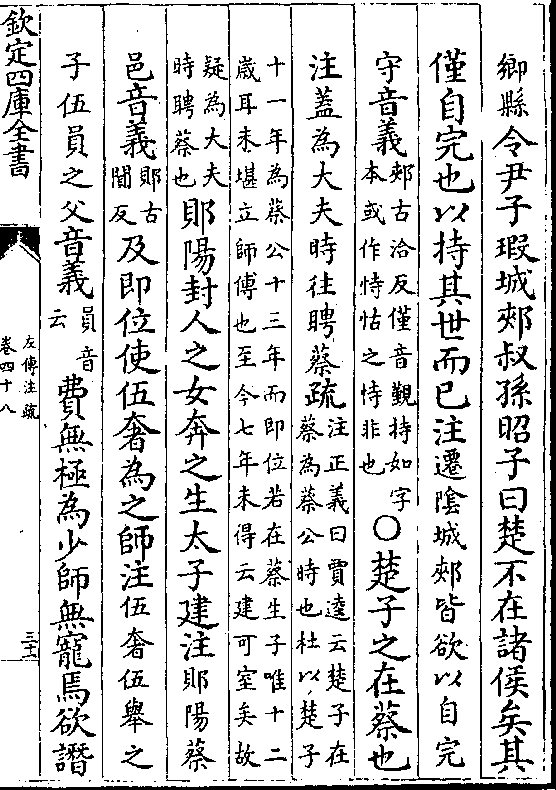 鄉縣令尹子瑕城郟叔孫昭子曰楚不在諸侯矣其
僅自完也以持其世而已注遷陰城郟皆欲以自完
守音義郟古洽反僅音覲持如字本或作恃怙之恃非也○楚子之在蔡也
注蓋為大夫時往聘蔡疏注正義曰賈逵云楚子在蔡為蔡公時也杜以楚子
十一年為蔡公十三年而即位若在蔡生子唯十二歲耳未堪立師傅也至今七年未得云建可室矣故
疑為大夫時聘蔡也郹陽封人之女奔之生太子建注郹陽蔡
邑音義郹古闃反及即位使伍奢為之師注伍奢伍舉之
子伍員之父音義員音云費無極為少師無寵焉欲譖
欽定四庫全書
左傳注疏
卷四十八